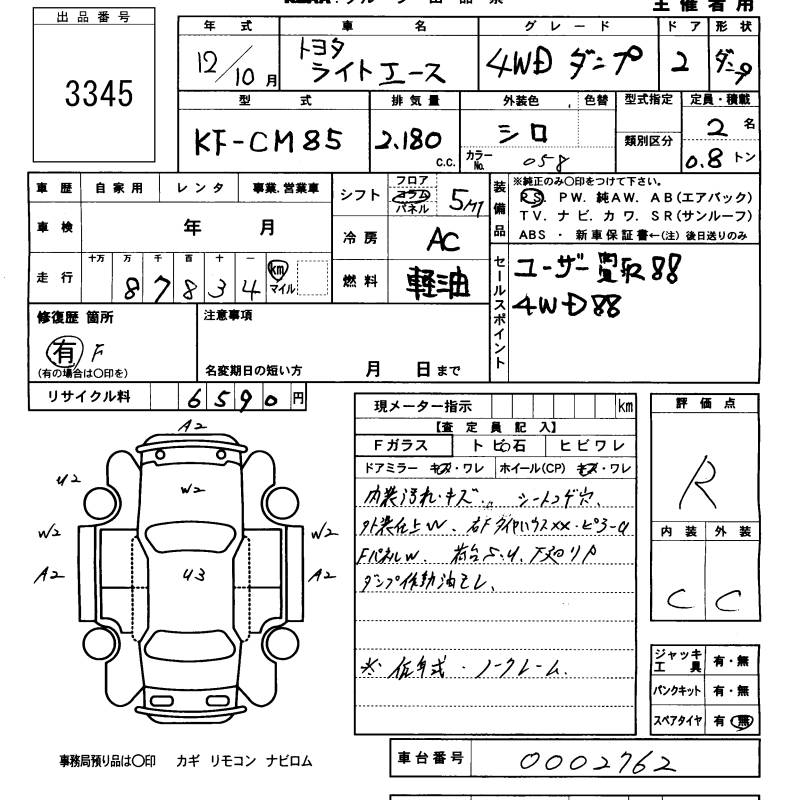 主催者用
出品番号
3345
年式 車名 グレード ドア 形状
12/10月 トヨタ ライトエース 4WD ダンプ 2 ダンプ
型式 排気量 外装色 色替 型式指定 定員・積載
KF-CM85 2.180 c.c. シロ 類別区分 2名
カラーNo. 058 0.8トン
車歴 自家用 レンタ 事業.営業車
車検 年 月
走行 十万 万 千 百 十 一 km マイル
8 7 8 3 4
シフト フロア コラム パネル 5
冷房 AC
燃料 軽油
装備品
※純正のみ〇印をつけて下さい。
PS. PW. 純AW. AB(エアバック)
TV. ナビ. カワ. SR(サンルーフ)
ABS ・ 新車保証書←(注) 後日送りのみ
セールスポイント
ユーザー買取!!
4WD!!
修復歴 箇所
有 F
(有の場合は〇印を)
注意事項
名変期日の短い方 月 日まで
リサイクル料 6590円
A2
U2
W2
W2 W2
A2 U3 A2
現メーター指示 km
【査定員記入】
Fガラス トビ石 ヒビワレ
ドアミラー キズ・ワレ ホイール(CP) キズ・ワレ
内装汚れ・キズ. シートコゲ穴、
外装仕上W、
FパネルW、
ダンプ作動油モレ、
※低年式・ノークレーム.
評価点
R
内装 外装
C C
ジャッキ 工具 有・無
パンクキット 有・無
スペアタイヤ 有・無
事務局預り品は〇印 カギ リモコン ナビロム
車台番号 0002762